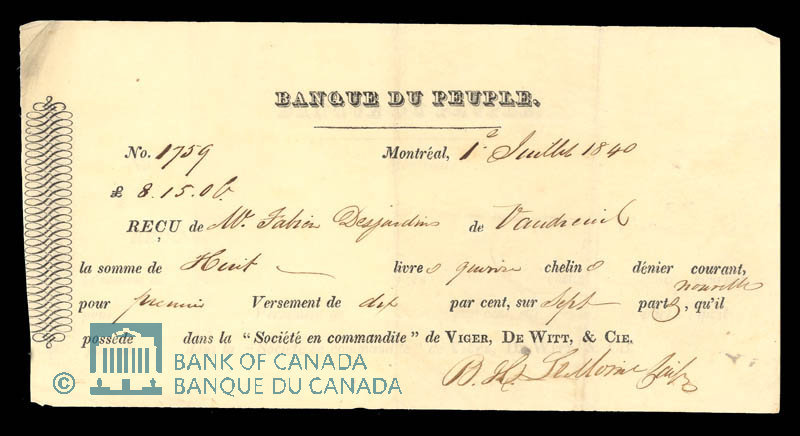 BANQUE DU PEUPLE.
No. 1759 Montréal, 1r Juillet 1840
£ 8.15.0
REÇU de Mr. Fabien Desjardins de Vaudreuil
la somme de Huit livres quinze chelins dénier courant,
pour premier Versement de dix par cent, sur Sept parts, nouvelle qu'il
possède dans la "Société en commandite" de VIGER, DE WITT, & CIE.
BANK OF CANADA
© BANQUE DU CANADA
B. H. LeMoine